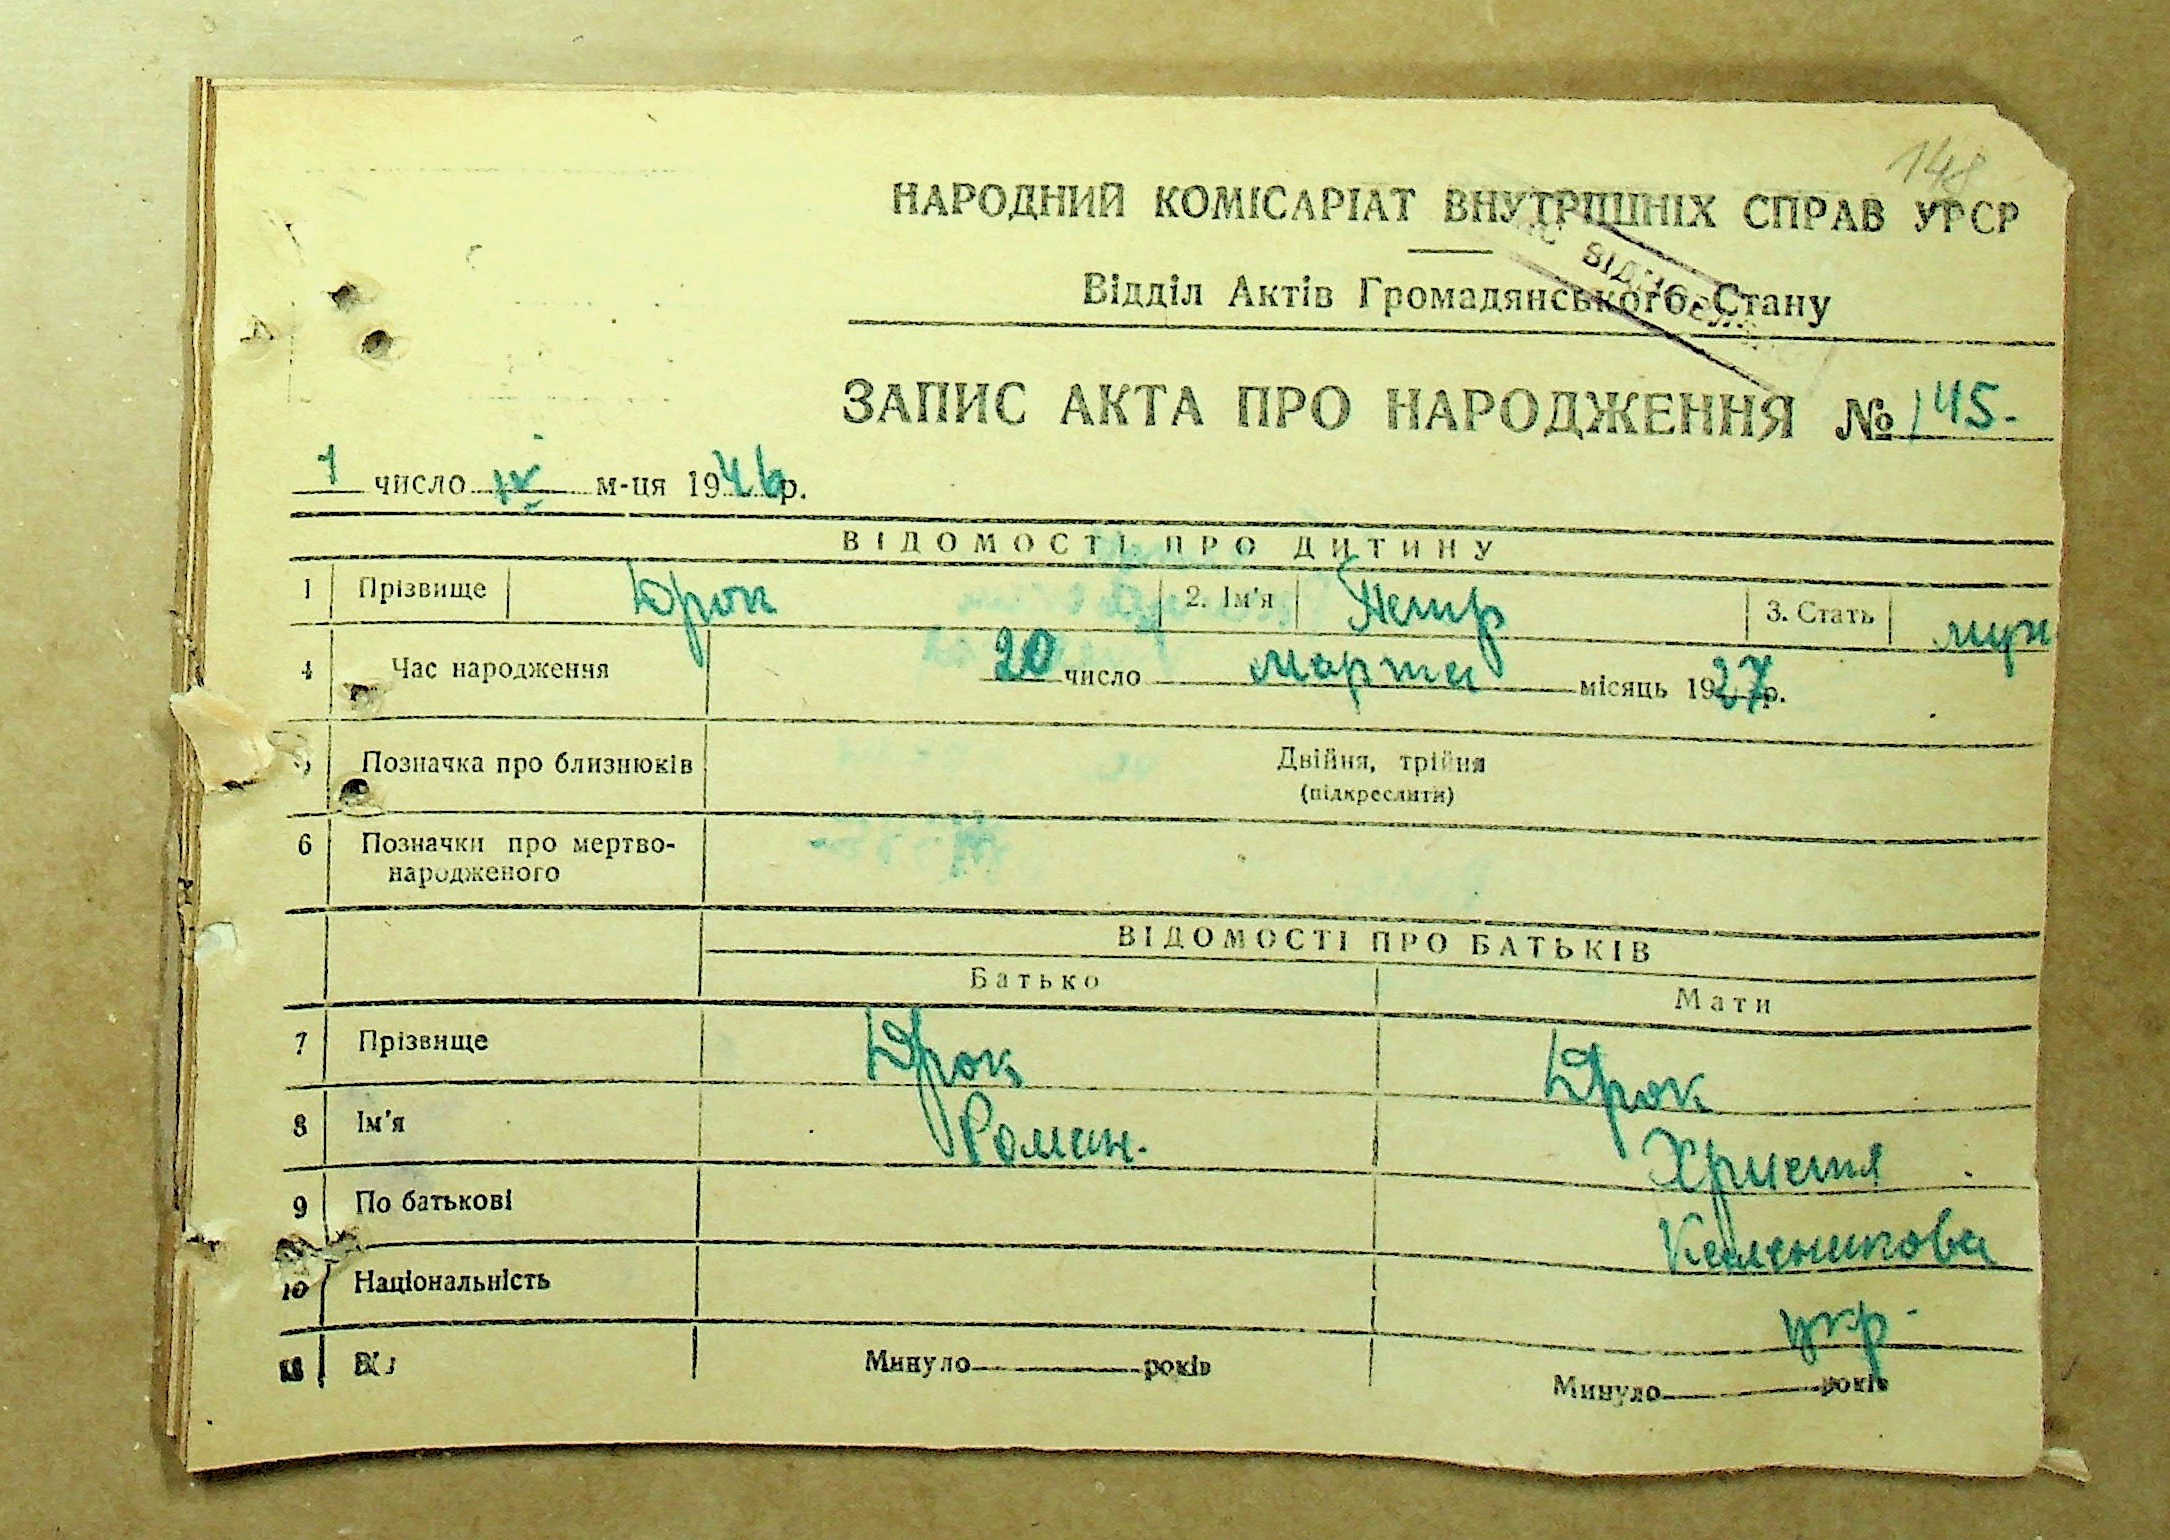 148
НАРОДНИЙ КОМІСАРІАТ ВНУТРІШНІХ СПРАВ УРСР
Відділ Актів Громадянського Стану
ЗАПИС АКТА ПРО НАРОДЖЕННЯ № 145.
1 число IV м-ця 1946 р.
ВІДОМОСТІ ПРО ДИТИНУ
1 Прізвище Дрок 2. Ім'я Петр 3. Стать муж
4 Час народження 20 число марта місяць 1927 р.
5 Позначка про близнюків Двійня, трійня
(підкреслити)
6 Позначки про мертво-
народженого
ВІДОМОСТІ ПРО БАТЬКІВ
Батько Мати
7 Прізвище Дрок Дрок
8 Ім'я Роман. Христя
9 По батькові Каленикова
10 Національність укр.
Минуло років Минуло років